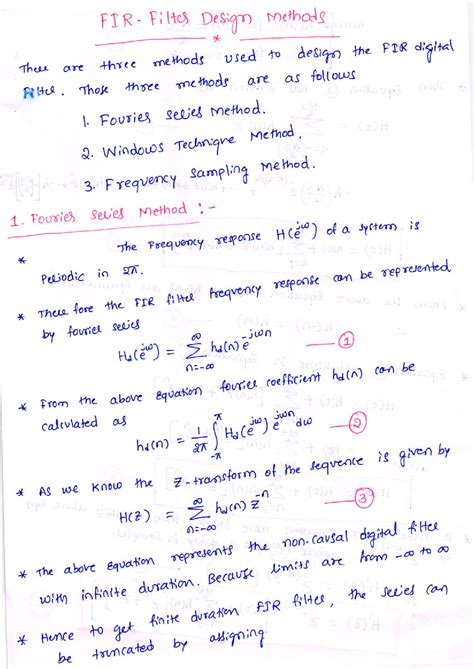 FIR - Filter Design Methods
*
There are three methods used to design the FIR digital
Filter. Those three methods are as follows
1. Fourier Series Method.
2. Windows Technique Method.
3. Frequency Sampling Method.
1. Fourier Series Method :-
* The Frequency response H(e^jω) of a system is
Periodic in 2π.
* There fore the FIR filter frequency response can be represented
by fourier series
H_d(e^jω) = Σ_{n=-∞}^{∞} h_d(n) e^{-jωn} —①
* From the above equation fourier coefficient h_d(n) can be
calculated as
h_d(n) = 1/2π ∫_{-π}^{π} H_d(e^jω) e^{jωn} dω —②
* As we know the Z-transform of the sequence is given by
H(Z) = Σ_{n=-∞}^{∞} h_d(n) Z^{-n} —③
* The above equation represents the non-causal digital filter
with infinite duration. Because limits are from -∞ to ∞
* Hence to get finite duration FIR filter, the series can
be truncated by assigning